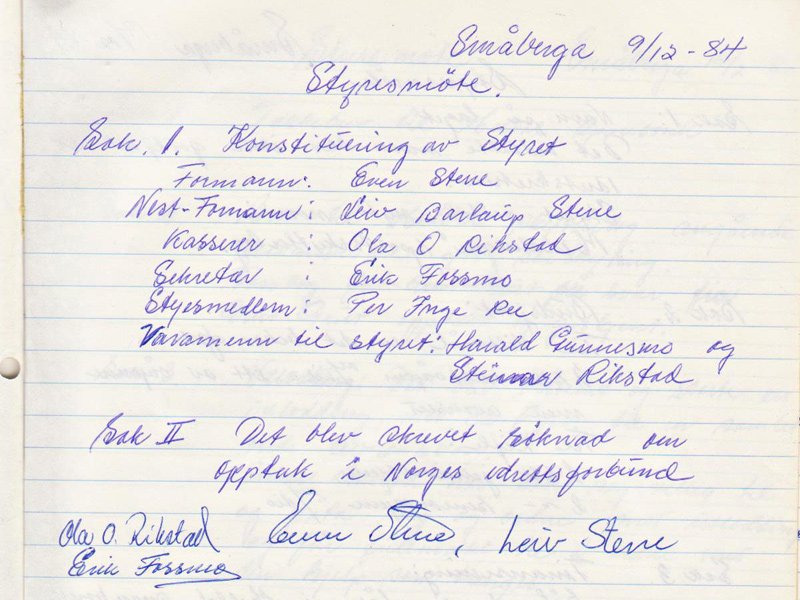 Småberga 9/12-84
Styresmöte.
Sak. 1. Konstituering av Styret
Formann: Even Stene
Nest-Fomann: Leiv Barlaup Stene
Kasserer : Ola O Rikstad
Sekretær : Erik Fossmo
Styesmedlem: Per Inge Ree
Varamenn til styret: Harald Gunnesmo og
Steinar Rikstad
Sak II Det blev skrevet söknad om
opptak i Norges idrettsforbund
Ola O. Rikstad Even Stene, Leiv Stene
Erik Fossmo